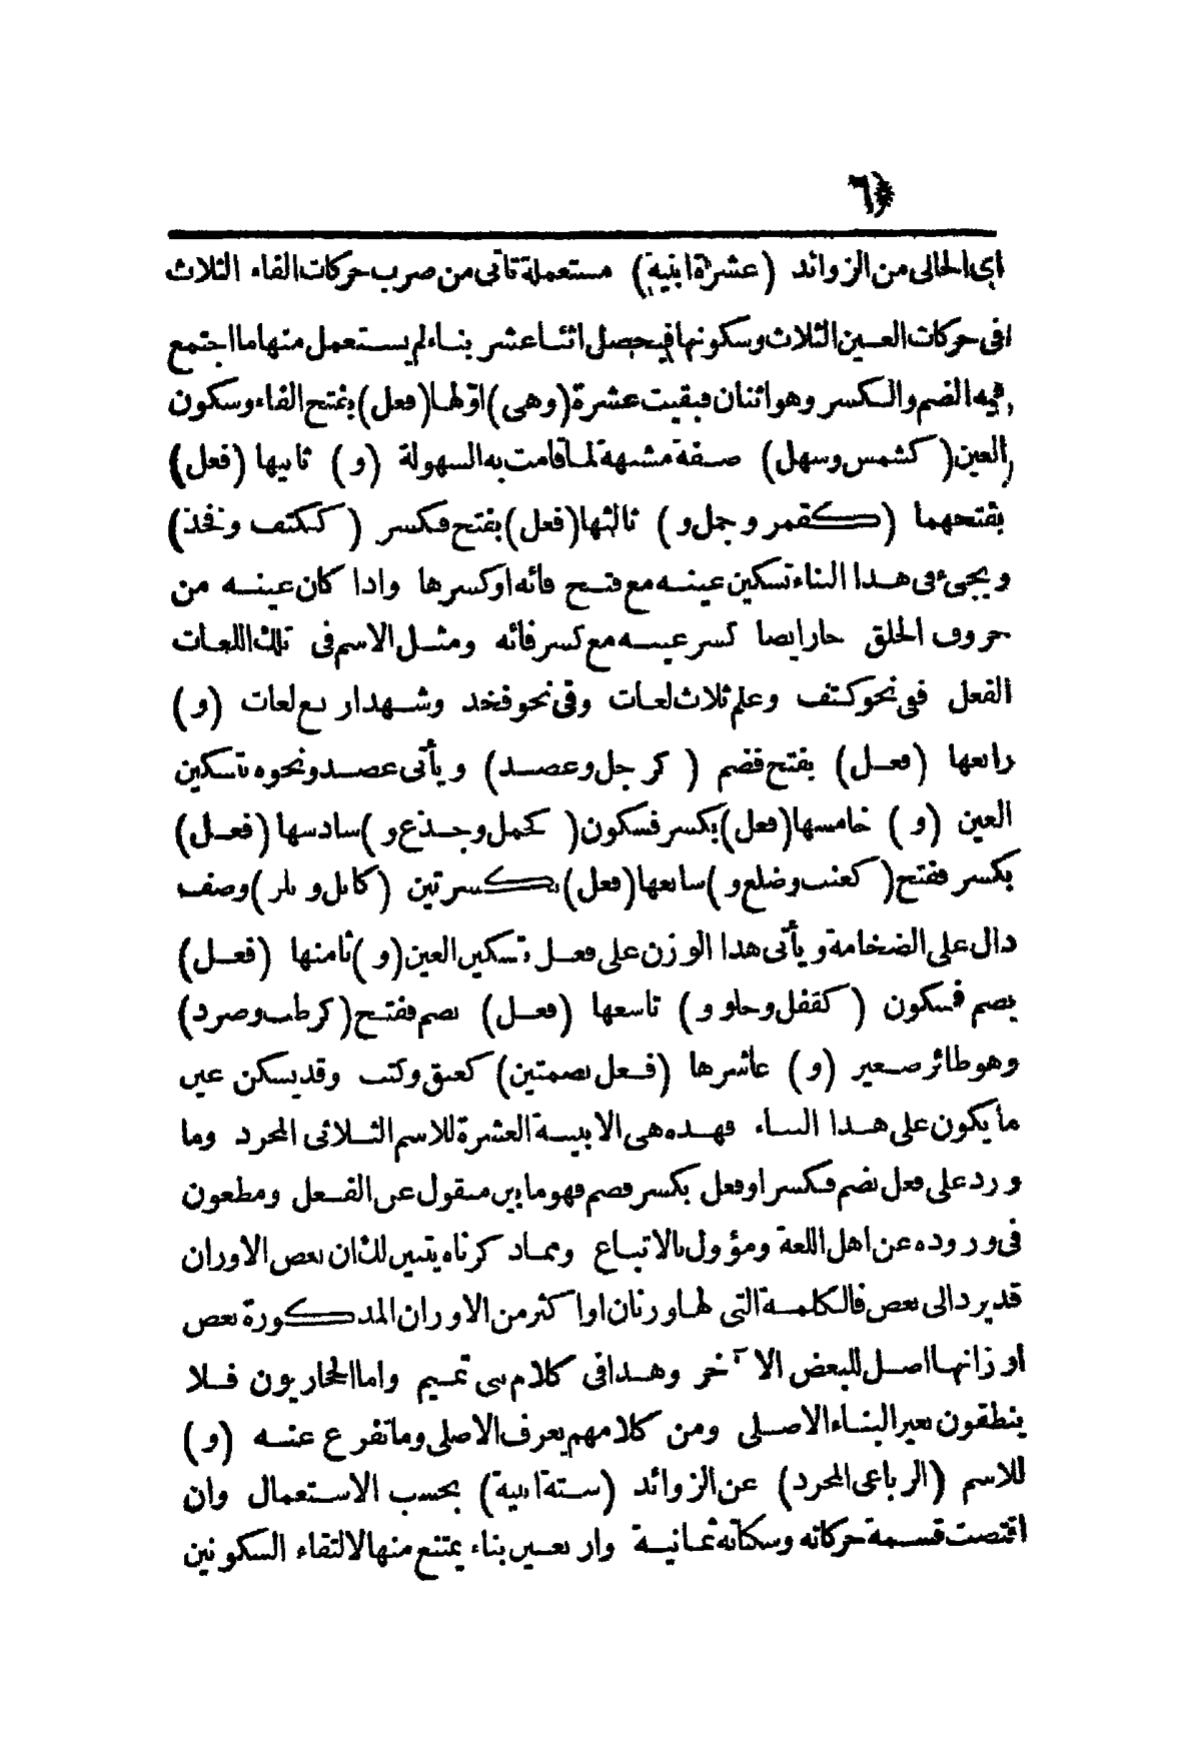 ٦
اى الخالى من الزوائد (عشرة ابنية) مستعملة تأتى من ضرب حركات الفاء الثلاث
فى حركات العين الثلاث وسكونها فيحصل اثنا عشر بناء لم يستعمل منها ما اجتمع
فيه الضم والكسر وهو اثنان فبقيت عشرة (وهى) اوّلها (فعل) بفتح الفاء وسكون
العين (كشمس وسهل) صفة مشبهة لما قامت به السهولة (و) ثانيها (فعل)
بفتحهما (كقمر وجمل و) ثالثها (فعل) بفتح فكسر (ككتف وفخذ)
ويجىء فى هذا البناء تسكين عينه مع فتح فائه او كسرها واذا كان عينه من
حروف الحلق جاز ايضا كسر عينه مع كسر فائه ومثل الاسم فى تلك اللغات
الفعل ففى نحو كتف وعلم ثلاث لغات وفى نحو فخذ وشهد اربع لغات (و)
رابعها (فعل) بفتح فضم (كرجل وعضد) ويأتى عضد ونحوه بتسكين
العين (و) خامسها (فعل) بكسر فسكون (كحمل وجذع و) سادسها (فعل)
بكسر ففتح (كعنب وضلع و) سابعها (فعل) بكسرتين (كابل وبلز) وصف
دال على الضخامة ويأتى هذا الوزن على فعل بتسكين العين (و) ثامنها (فعل)
بضم فسكون (كقفل وحلو و) تاسعها (فعل) بضم ففتح (كرطب وصرد)
وهو طائر صغير (و) عاشرها (فعل بضمتين) كعنق وكتب وقد يسكن عين
ما يكون على هذا البناء فهذه هى الابنية العشرة للاسم الثلاثى المجرد وما
ورد على فعل بضم فكسر او فعل بكسر فضم فهو ما بين منقول عن الفعل ومطعون
فى وروده عن اهل اللغة ومؤول بالاتباع ومما ذكرناه يتبين لك ان بعض الاوزان
قد يرد الى بعض فالكلمة التى لها وزنان او اكثر من الاوزان المذكورة بعض
اوزانها اصل للبعض الآخر وهذا فى كلام بنى تميم واما الحجازيون فلا
ينطقون بغير البناء الاصلى ومن كلامهم يعرف الاصلى وما تفرع عنه (و)
للاسم (الرباعى المجرد) عن الزوائد (ستة ابنية) بحسب الاستعمال وان
اقتضت قسمة حركاته وسكناته ثمانية واربعين بناء يمتنع منها لالتقاء السكونين